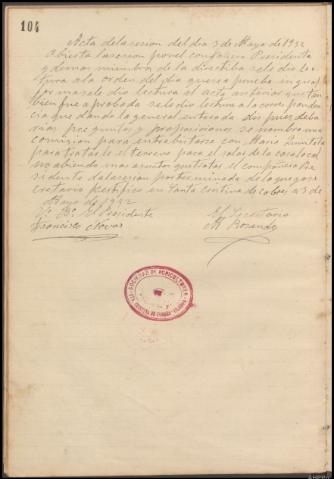 104
Acta de la secion del dia 3 de Mayo de 1932
Abierta la secion por el compañero Presidente
y demas miembros de la directiba se le dio lec
tura a la orden del dia que se aprueba en igual
forma se le dio lectura al acta anterior que tan
bien fue aprobada se le dio lectura a la correspondencia
que dando la general enterada dos pues deba
rios puntos y proposiciones se nombra una
comision para entrebistarse con Mario Quintela
para tratar le el terreno para el solar de la casa local
no abiendo mas asuntos que tratar el compañero Pre
sidente da la secion por terminada de lo que yo se
cretario certifico en Santa Cristina de Cobres a 3 de
Mayo de 1932
Vº Bº El Presidente
El Secretario
Francisco
M Rosendo
SOCIEDAD DE AGRICULTORES
SANTA CRISTINA DE COBRES